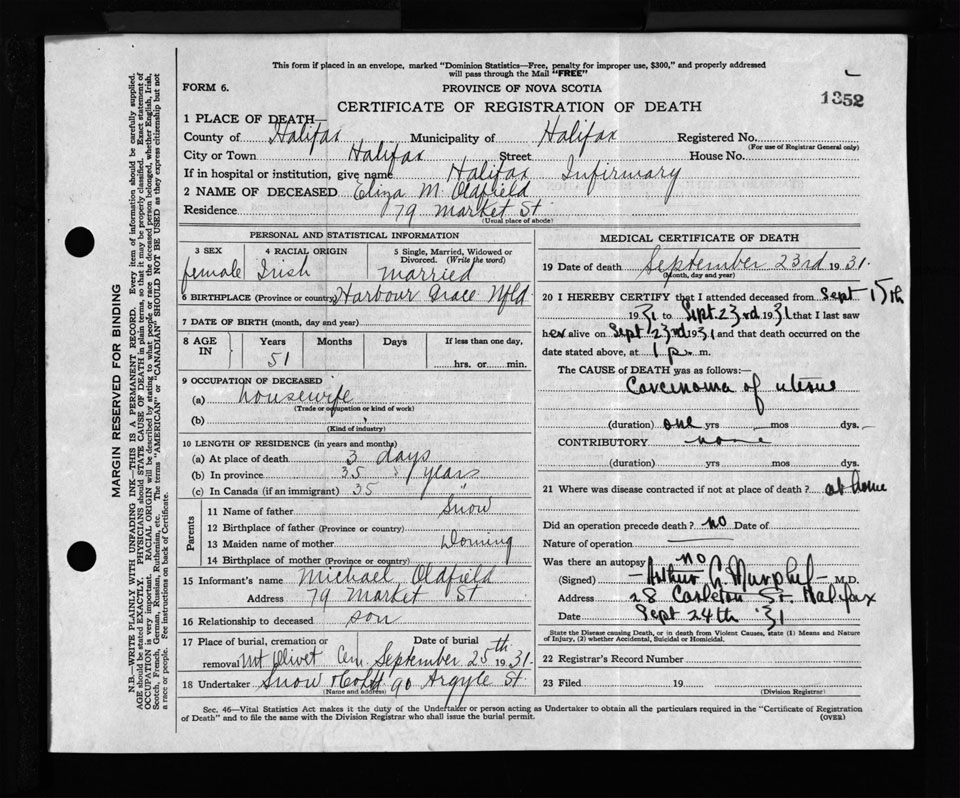 This form if placed in an envelope, marked "Dominion Statistics—Free, penalty for improper use, $300," and properly addressed
will pass through the Mail "FREE"
FORM 6.
PROVINCE OF NOVA SCOTIA
1352
CERTIFICATE OF REGISTRATION OF DEATH
1 PLACE OF DEATH—
County of Halifax Municipality of Halifax Registered No.
(For use of Registrar General only)
City or Town Halifax Street House No.
If in hospital or institution, give name Halifax Infirmary
2 NAME OF DECEASED Eliza M Oldfield
Residence 79 Market St
(Usual place of abode)
PERSONAL AND STATISTICAL INFORMATION
3 SEX 4 RACIAL ORIGIN 5 Single, Married, Widowed or
Divorced. (Write the word)
female Irish married
6 BIRTHPLACE (Province or country) Harbour Grace Nfld
7 DATE OF BIRTH (month, day and year)
8 AGE IN Years Months Days If less than one day,
51 hrs. or min.
9 OCCUPATION OF DECEASED
(a) housewife
(Trade or occupation or kind of work)
(b)
(Kind of industry)
10 LENGTH OF RESIDENCE (in years and months)
(a) At place of death 3 days
(b) In province 35 years
(c) In Canada (if an immigrant) 35 "
Parents
11 Name of father Snow
12 Birthplace of father (Province or country)
13 Maiden name of mother
14 Birthplace of mother (Province or country)
15 Informant's name Michael Oldfield
Address 79 Market St
16 Relationship to deceased son
17 Place of burial, cremation or Date of burial
removal Mt Olivet Cem September 25th 1931.
18 Undertaker Snow & Co Ltd 90 Argyle St
(Name and address)
MEDICAL CERTIFICATE OF DEATH
19 Date of death September 23rd 1931.
(Month, day and year)
20 I HEREBY CERTIFY that I attended deceased from Sept 15th
1931 to Sept. 23rd 1931 that I last saw
her alive on Sept 23rd 1931 and that death occurred on the
date stated above, at 1 p. m.
The CAUSE OF DEATH was as follows:—
Carcinoma of uterus
(duration) one yrs mos dys.
CONTRIBUTORY none
(duration) yrs mos dys.
21 Where was disease contracted if not at place of death? at home
Did an operation precede death? no Date of
Nature of operation
Was there an autopsy no
(Signed) Arthur C. Murphy M.D.
Address 28 Carleton St. Halifax
Date Sept 24th '31
State the Disease causing Death, or in death from Violent Causes, state (1) Means and Nature
of Injury, (2) whether Accidental, Suicidal or Homicidal.
22 Registrar's Record Number
23 Filed 19
(Division Registrar)
Sec. 46—Vital Statistics Act makes it the duty of the Undertaker or person acting as Undertaker to obtain all the particulars required in the "Certificate of Registration
of Death" and to file the same with the Division Registrar who shall issue the burial permit.
(OVER)
MARGIN RESERVED FOR BINDING
N.B.—WRITE PLAINLY WITH UNFADING INK—THIS IS A PERMANENT RECORD. Every item of information should be carefully supplied.
AGE should be stated EXACTLY. PHYSICIANS should STATE CAUSE OF DEATH in plain terms, so that it may be properly classified. Exact statement of
OCCUPATION is very important. RACIAL ORIGIN will be described by stating to what people or race the deceased person belonged, whether English, Irish,
Scotch, French, German, Russian, Ruthenian, etc. The terms "AMERICAN" or "CANADIAN" SHOULD NOT BE USED as they express citizenship but not
a race or people. See instructions on back of Certificate.